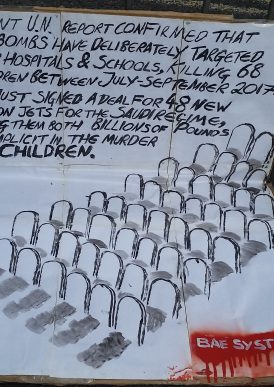 NT U.N. REPORT CONFIRMED THAT
BOMBS HAVE DELIBERATELY TARGETED
HOSPITALS & SCHOOLS, KILLING 68
DREN BETWEEN JULY-SEPTEMBER 2017
UST SIGNED A DEAL FOR 48 NEW
ON JETS FOR THE SAUDI REGIME,
NG THEM BOTH BILLIONS OF POUNDS
MPLICIT IN THE MURDER
CHILDREN.
BAE SYST